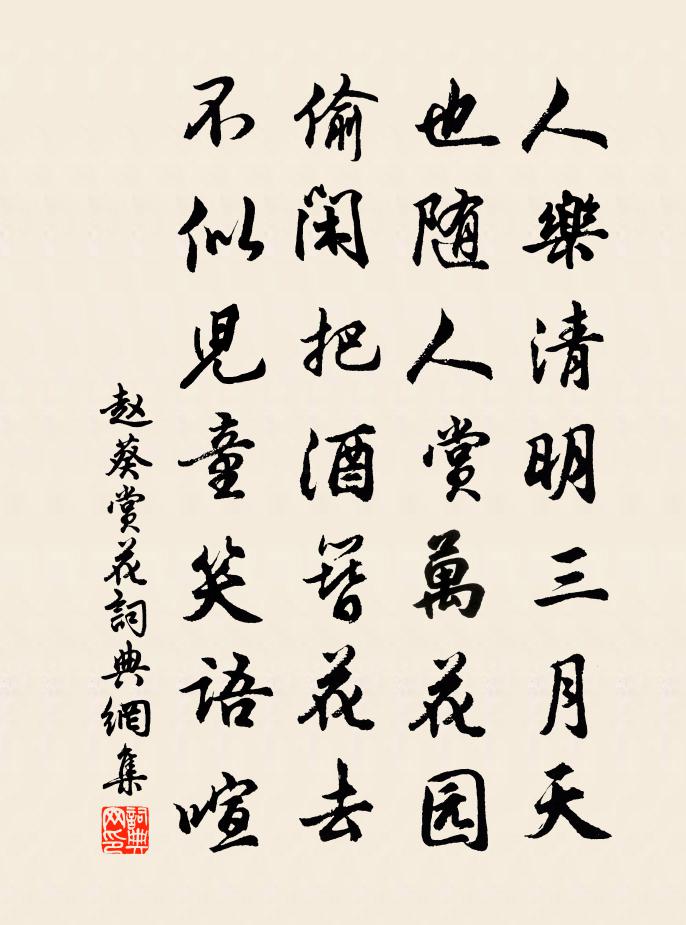 人樂清明三月天
也随人賞萬花园
偷閑把酒簪花去
不似児童笑語喧
赵葵賞花詞典網集
詞典网印